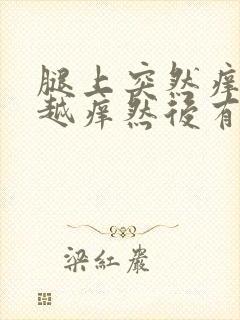 腿上突然痒
越痒然后有
梁紅巖